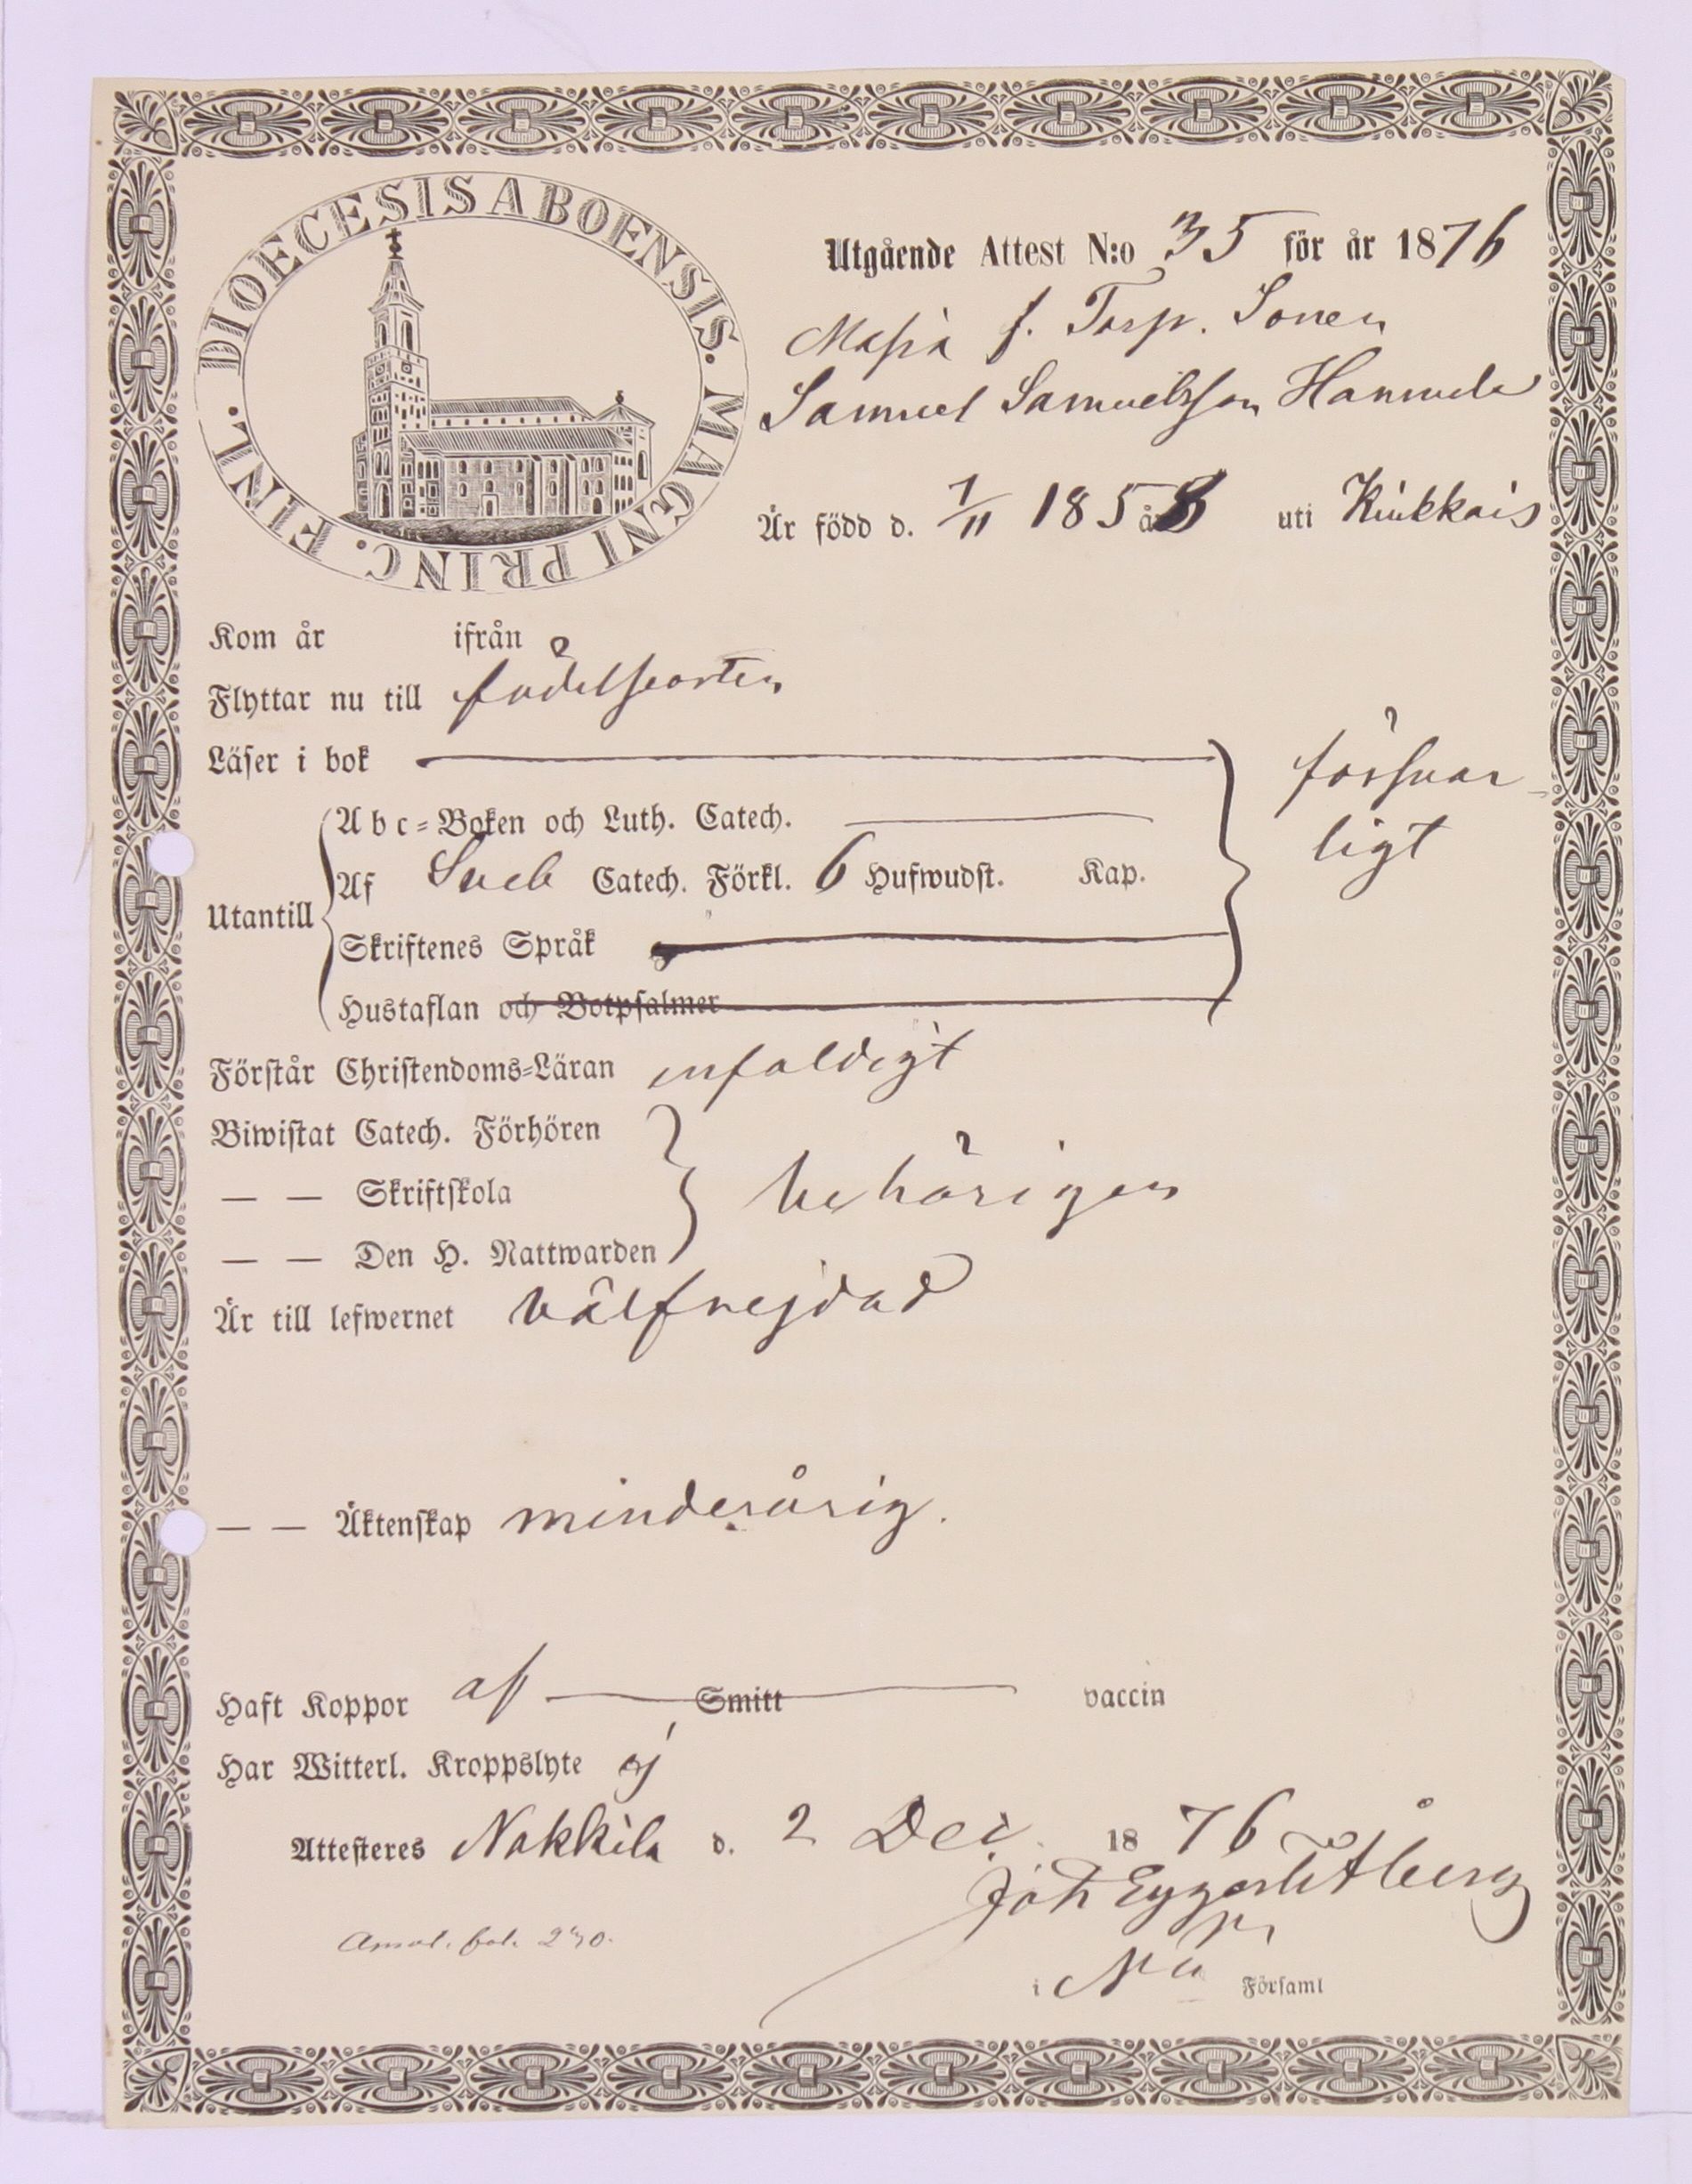 DIOECESIS ABOENSIS. MAGNI PRINC. FINL.
Utgående Attest N:o 35 för år 1876
f. Torp. Sonen
Samuel Samuelsson Hannula
Är född d. 7/11 1858 uti Kiukkais
Kom år ifrån
Flyttar nu till födelseorten
Läser i bok
försvar-
ligt
Abc-Boken och Luth. Catech.
Af Sveb Catech. Förkl. 6 Hufwudst. Kap.
Utantill
Skriftenes Språk
Hustaflan och Botpsalmer
Förstår Christendoms-Läran enfaldigt
Biwistat Catech. Förhören
— — Skriftskola behörigen
— — Den H. Nattwarden
Är till lefwernet välfrejdad
— — Äktenskap minderårig.
Haft Koppor af Smitt vaccin
Har Witterl. Kroppslyte ej
Attesteres Nakkila d. 2 Dec. 1876
Joh Eggert Åberg
Amot. fol. 270.
i Församl